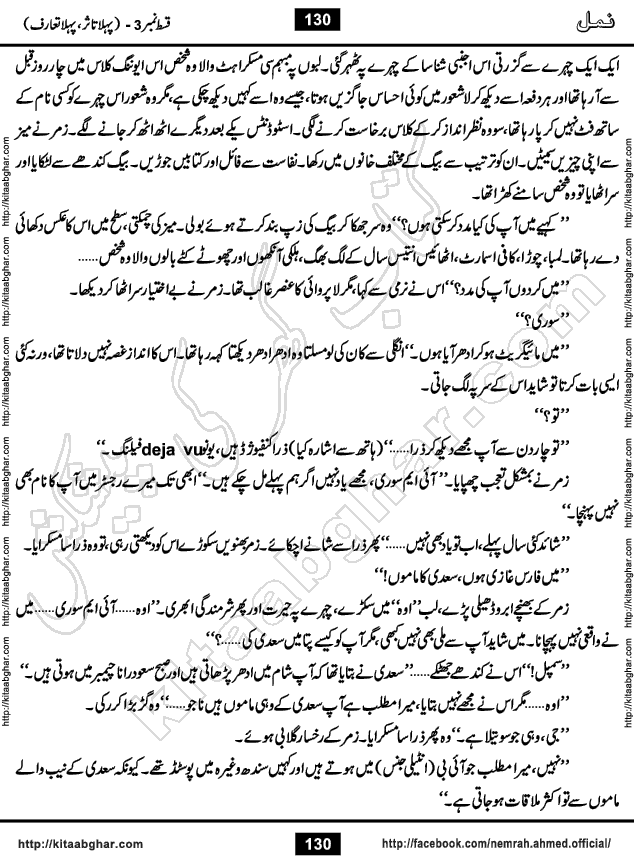 نمل
130
قسط نمبر 3 - (پہلا تاثر، پہلا تعارف)
ایک ایک چہرے سے گزرتی اس اجنبی شناسا کے چہرے پہ ٹھہر گئی۔ لبوں پہ مبہم سی مسکراہٹ والا وہ شخص اس ایوننگ کلاس میں چار روز قبل
سے آ رہا تھا اور ہر دفعہ اسے دیکھ کر لاشعور میں کوئی احساس جاگزیں ہوتا، جیسے وہ اسے کہیں دیکھ چکی ہے، مگر وہ شعور اس چہرے کو کسی نام کے
ساتھ فٹ نہیں کر پا رہا تھا، سو وہ نظر انداز کر کے کلاس برخاست کرنے لگی۔ اسٹوڈنٹس یکے بعد دیگرے اٹھ اٹھ کر جانے لگے۔ زمر نے میز
سے اپنی چیزیں سمیٹیں۔ ان کو ترتیب سے بیگ کے مختلف خانوں میں رکھا۔ نفاست سے فائل اور کتابیں جوڑیں۔ بیگ کندھے سے لٹکایا اور
سر اٹھایا تو وہ شخص سامنے کھڑا تھا۔
’’کہیے میں آپ کی کیا مدد کر سکتی ہوں؟‘‘ وہ سر جھکا کر بیگ کی زپ بند کرتے ہوئے بولی۔ میز کی چمکتی سطح میں اس کا عکس دکھائی
دے رہا تھا۔ لمبا، چوڑا، کافی اسمارٹ، اٹھائیس انتیس سال کے لگ بھگ، ہلکی آنکھوں اور چھوٹے کٹے بالوں والا وہ شخص......
’’میں کر دوں آپ کی مدد؟‘‘ اس نے نرمی سے کہا، مگر لاپروائی کا عنصر غالب تھا۔ زمر نے بے اختیار سر اٹھا کر دیکھا۔
’’سوری؟‘‘
’’میں مائیگریٹ ہو کر ادھر آیا ہوں۔‘‘ انگلی سے کان کی لو مسلتا وہ ادھر ادھر دیکھتا کہہ رہا تھا۔ اس کا انداز غصہ نہیں دلاتا تھا، ورنہ کئی
ایسی بات کرتا تو شاید اس کے سر پہ لگ جاتی۔
’’تو؟‘‘
’’تو چار دن سے آپ مجھے دیکھ کر ذرا......‘‘ (ہاتھ سے اشارہ کیا) ذرا کنفیوژڈ ہیں، یو نو deja vu فیلنگ۔‘‘
زمر نے بمشکل تعجب چھپایا۔ ’’آئی ایم سوری، مجھے یاد نہیں اگر ہم پہلے مل چکے ہیں۔‘‘ ابھی تک میرے رجسٹر میں آپ کا نام بھی
نہیں پہنچا۔‘‘
’’شائد کئی سال پہلے، اب تو یاد بھی نہیں......‘‘ پھر ذرا سے شانے اچکائے۔ زمر بھنویں سکوڑے اس کو دیکھتی رہی، تو وہ ذرا سا مسکرایا۔
’’میں فارس غازی ہوں، سعدی کا ماموں!‘‘
زمر کے بھنچے ابرو ڈھیلے پڑے، لب ’’اوہ‘‘ میں سکڑے، چہرے پہ حیرت اور پھر شرمندگی ابھری۔ ’’اوہ...... آئی ایم سوری...... میں
نے واقعی نہیں پہچانا۔ میں شاید آپ سے ملی بھی نہیں کبھی، مگر آپ کو کیسے پتا میں سعدی کی......؟‘‘
’’سمپل!‘‘ اس نے کندھے جھٹکے...... ’’سعدی نے بتایا تھا کہ آپ شام میں ادھر پڑھاتی ہیں اور صبح سعود رانا چیمبر میں ہوتی ہیں۔‘‘
’’اوہ...... مگر اس نے مجھے نہیں بتایا، میرا مطلب ہے آپ سعدی کے وہی ماموں ہیں نا جو......‘‘ وہ گڑبڑا کر رکی۔
’’جی، وہی جو سوتیلا ہے۔‘‘ وہ پھر ذرا سا مسکرایا۔ زمر کے رخسار گلابی ہوئے۔
’’نہیں، میرا مطلب جو آئی بی (انٹیلی جنس) میں ہوتے ہیں اور کہیں سندھ وغیرہ میں پوسٹڈ تھے۔ کیونکہ سعدی کے نیب والے
ماموں سے تو اکثر ملاقات ہو جاتی ہے۔‘‘
http://kitaabghar.com
130
http://facebook.com/nemrah.ahmed.official/
http://kitaabghar.com
http://kitaabghar.com
http://kitaabghar.com
http://kitaabghar.com
http://kitaabghar.com
http://kitaabghar.com
http://kitaabghar.com
http://kitaabghar.com
http://kitaabghar.com
http://kitaabghar.com
http://kitaabghar.com
http://kitaabghar.com
کتاب گھر کی پیشکش
kitaabghar.com